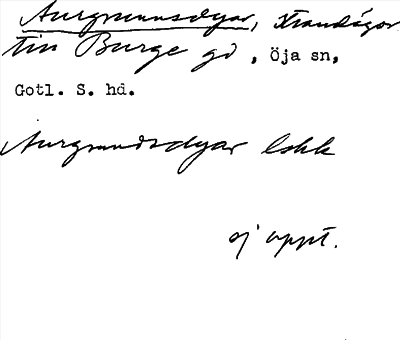 Aurgrunnsdyar, strandägor
till Burge gd, Öja sn,
Gotl. S. hd.
Aurgrundsdyar lskk
ej uppt.